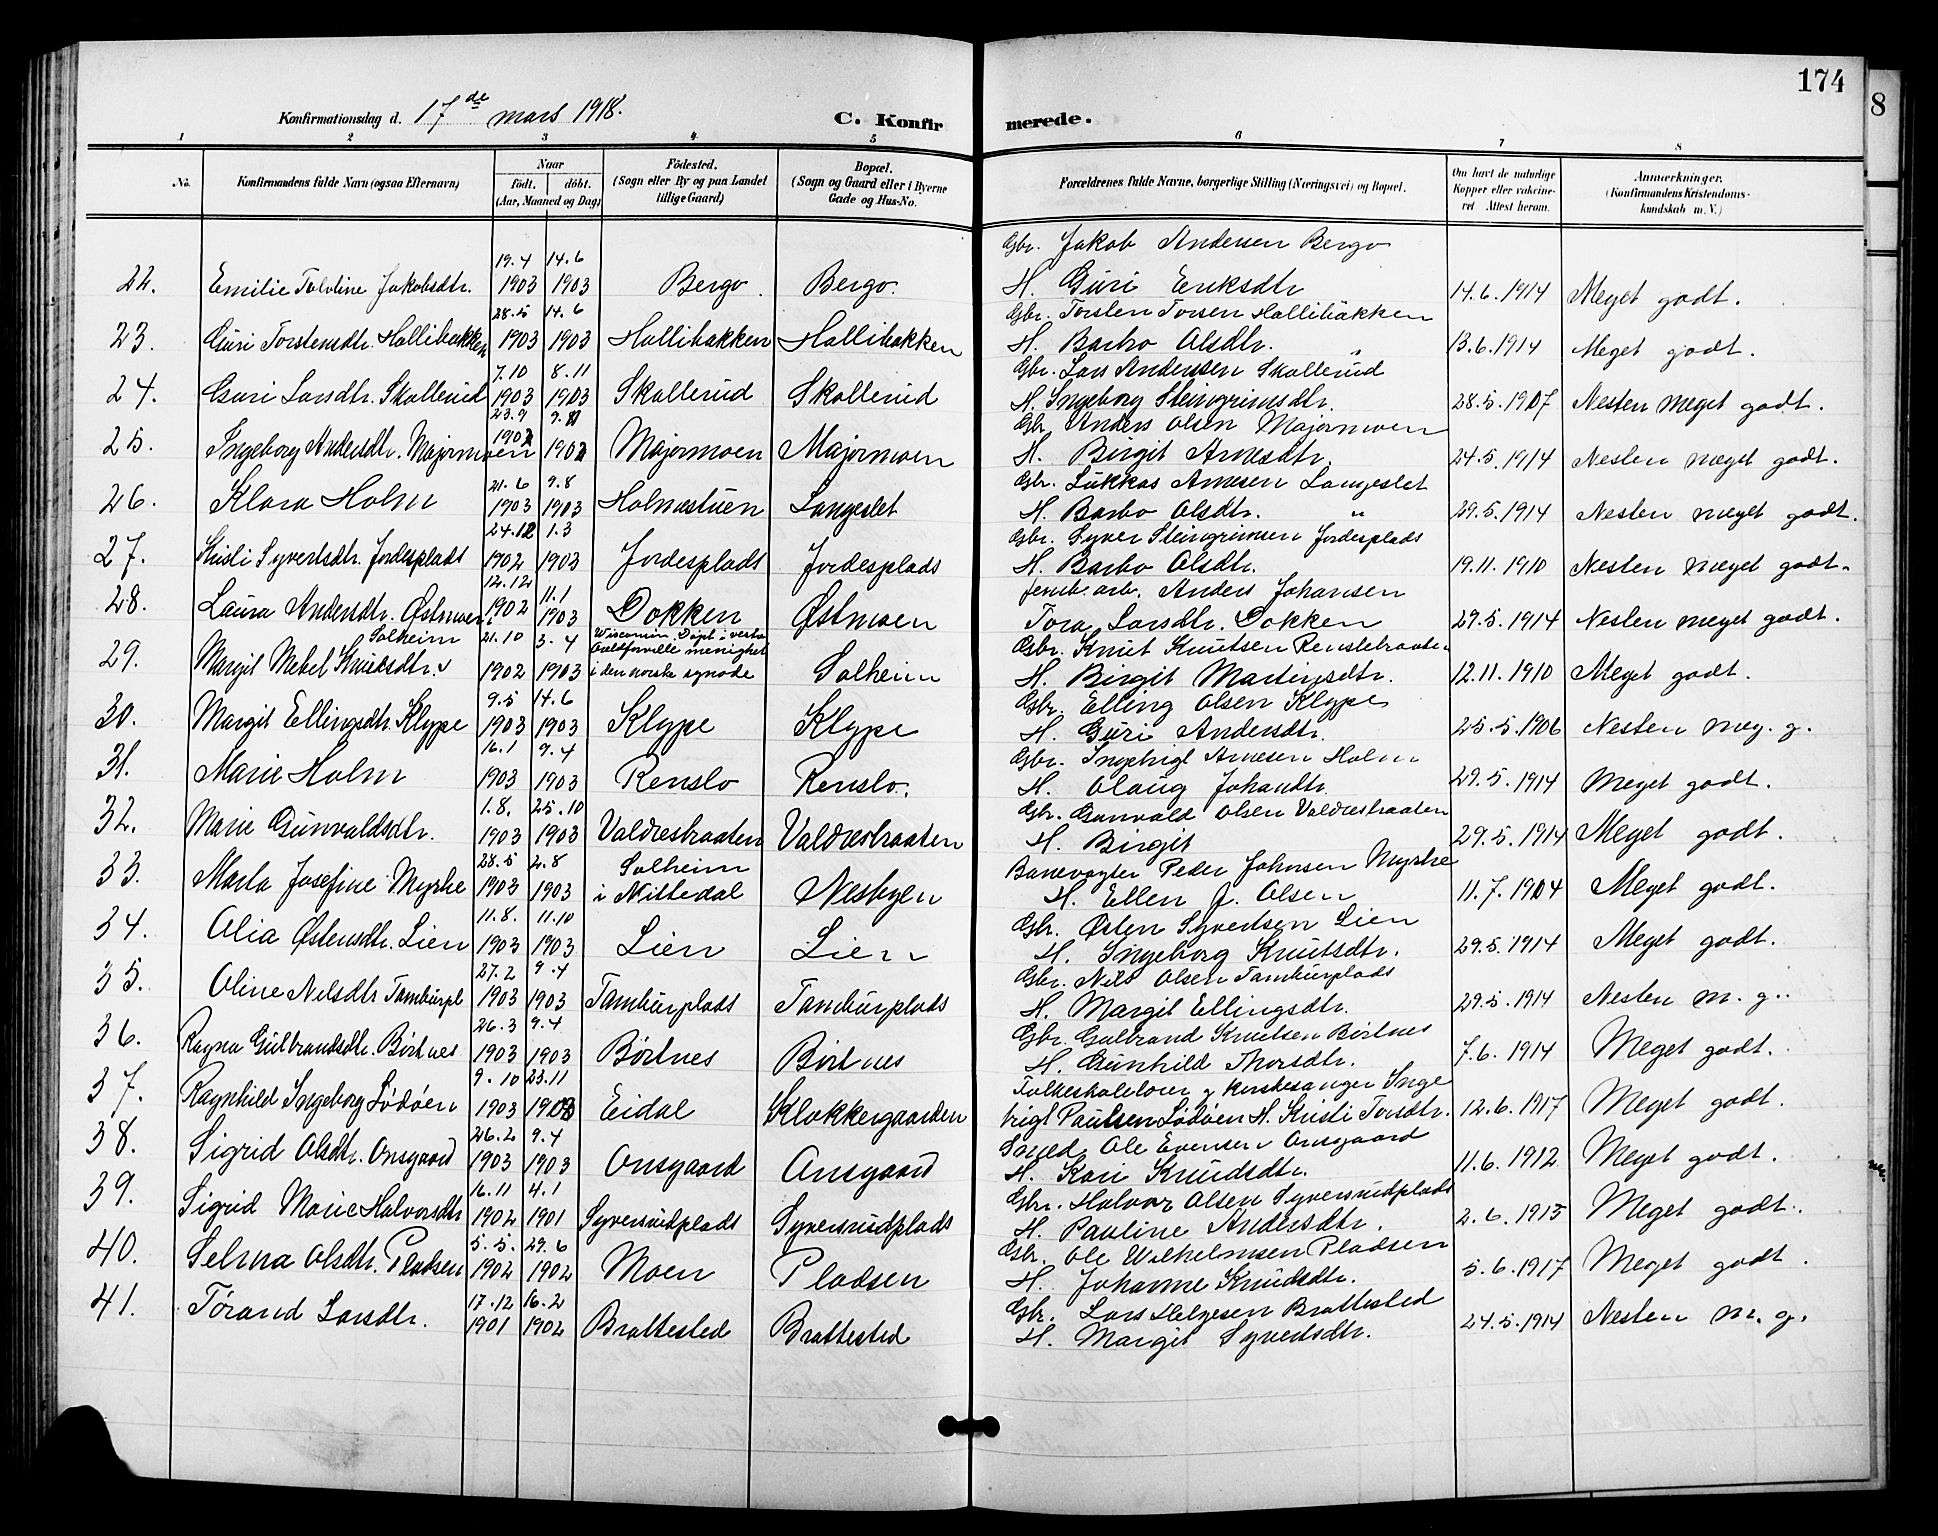 174
8
Konfirmationsdag d. 17de mars 1918.
C. Konfirmerede.
1 2 3 4 5 6 7 8
No. Konfirmandens fulde Navn (ogsaa Efternavn) Naar födt. döbt. (Aar, Maaned og Dag) Födested. (Sogn eller By og paa Landet tillige Gaard) Bopæl. (Sogn og Gaard eller i Byerne Gade og Hus-No. Forældrenes fulde Navne, borgerlige Stilling (Næringsvei) og Bopæl. Om havt de naturlige Kopper eller vakcineret Attest herom. Anmærkninger. (Konfirmandens Kristendomskundskab m. V.)
19.4 14.6 Gbr. Jakob Andersen Bergo
22. Emilie Jakobsdtr. 1903 1903 Bergo Bergo. H. Guri Eriksdtr 14.6.1914 Meget godt.
28.5 14.6 Gbr. Torsten Torsen Hallibakken
23. Guri Torstensdtr. Hallibakken 1903 1903 Hallibakken Hallibakken H. Barbo Olsdtr. " 13.6.1914 Meget godt.
7.10 8.11 Gbr. Lars Andersen Skallerud
24. Guri Larsdtr. Skallerud 1903 1903 Skallerud Skallerud H. Ingeborg Steingrimsdtr. 28.5.1907 Nesten meget godt.
23.9 9.11 Gbr. Anders Olsen Majormoen
25. Ingeborg Andersdtr. Majormoen 1902 1902 Majormoen Majormoen H. Birgit Arnesdtr. 24.5.1914 Nesten meget godt.
21.6 9.8 Gbr. Lukkas Arnesen Langeslet
26. Klara Holm 1903 1903 Holmestuen Langeslet H. Barbo Olsdtr. " 29.5.1914 Nesten meget godt.
24.12 1.3 Gbr. Syver Steingrimsen Jordesplads
27. Kristi Syvertsdtr. Jordesplads 1902 1903 Jordesplads Jordesplads H. Barbo Olsdtr. 19.11.1910 Nesten meget godt.
12.12 11.1 Jernb. arb. Anders Johansen
28. Laura Andersdtr. Østmoen 1902 1903 Dokken Østmoen Tora Larsdtr. Dokken 29.5.1914 Nesten meget godt.
Solheim 21.10 3.4 Wisconsin. Døpt i vestre menighet Gbr. Knut Knutsen Renslebraaten
29. Margit Mebel Knutsdtr. 1902 1903 i den norske synode Solheim H. Birgit Martinsdtr. 12.11.1910 Meget godt.
9.5 14.6 Gbr. Elling Olsen Klype
30. Margit Ellingsdtr. Klype 1903 1903 Klype Klype H. Guri Andersdtr. 25.5.1906 Nesten meg. g.
16.1 9.4 Gbr. Ingebrigt Arnesen Holm
31. Marie Holm 1903 1903 Renslo Renslo. H. Olaug Johandtr. 29.5.1914 Meget godt.
1.8. 25.10 Gbr. Gunvald Olsen Valdrestraaten
32. Marie Gunvaldsdtr. 1903 1903 Valdrestraaten Valdrestraaten H. Birgit 29.5.1914 Meget godt.
28.5 2.8 Solheim Banevogter Peder Johnsen Myrhe
33. Marta Josefine Myrhe 1903 1903 i Nittedal Nesbyen H. Ellen J. Olsen 11.7.1904 Meget godt.
11.8. 11.10 Gbr. Østen Syvertsen Lien
34. Olia Østensdtr. Lien 1903 1903 Lien Lien H. Ingeborg Knutsdtr. 29.5.1914 Meget godt.
27.2 9.4 Gbr. Nils Olsen Tamburplads
35. Oline Nilsdtr Tamburpl 1903 1903 Tamburplads Tamburplads H. Margit Ellingsdtr. 29.5.1914 Nesten m. g.
26.3 9.4 Gbr. Gulbrand Knutsen Børtnes
36. Ragna Gulbrandsdtr. Børtnes 1903 1903 Børtnes Børtnes H. Gunhild Thorsdtr. 7.6.1914 Meget godt.
9.10 23.11 Folkeskolelærer g kirkesanger Inge
37. Ragnhild Ingeborg Lødøen 1903 1903 Eidal Klokkergaarden brigt Paulsen Lødøen H. Kristi Torsdtr. 12.6.1917 Meget godt.
26.2 9.4 Smed Ole Evensen Onsgaard
38. Sigrid Olsdtr. Onsgaard 1903 1903 Onsgaard Onsgaard H. Kari Knudsdtr. 11.6.1912 Meget godt.
16.11 4.1 Gbr. Halvor Olsen Syversrudplads
39. Sigrid Marie Halvorsdtr 1902 1901 Syversrudplads Syversrudplads H. Pauline Andersdtr. 2.6.1915 Meget godt.
5.5. 29.6 Gbr. Ole Wilhelmsen Pladsen
40. Selma Olsdtr. Pladsen 1902 1902 Moen Pladsen H. Johanne Knudsdtr. 5.6.1917 Meget godt.
17.12 16.2 Gbr. Lars Helgesen Brattested
41. Tørand Larsdtr. 1901 1902 Brattested Brattested H. Margit Syvertsdtr. 24.5.1914 Nesten m. g.